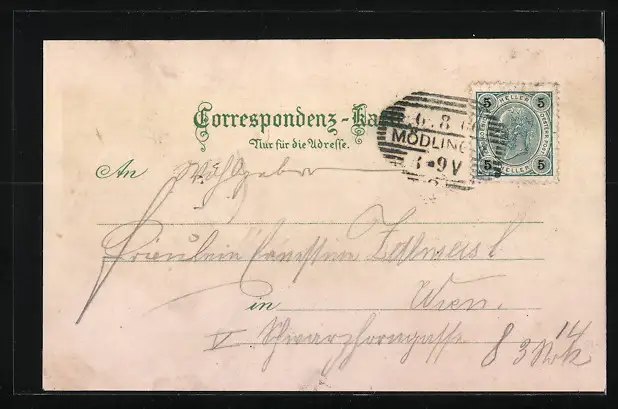 Correspondenz-Ka
Nur für die Adresse.
6. 8
MÖDLING
8·9V
5 HELLER 5
5 HELLER 5
An Wohlgeboren
Fräulein
in Wien.
V Schwarzhorngasse 8
14
3